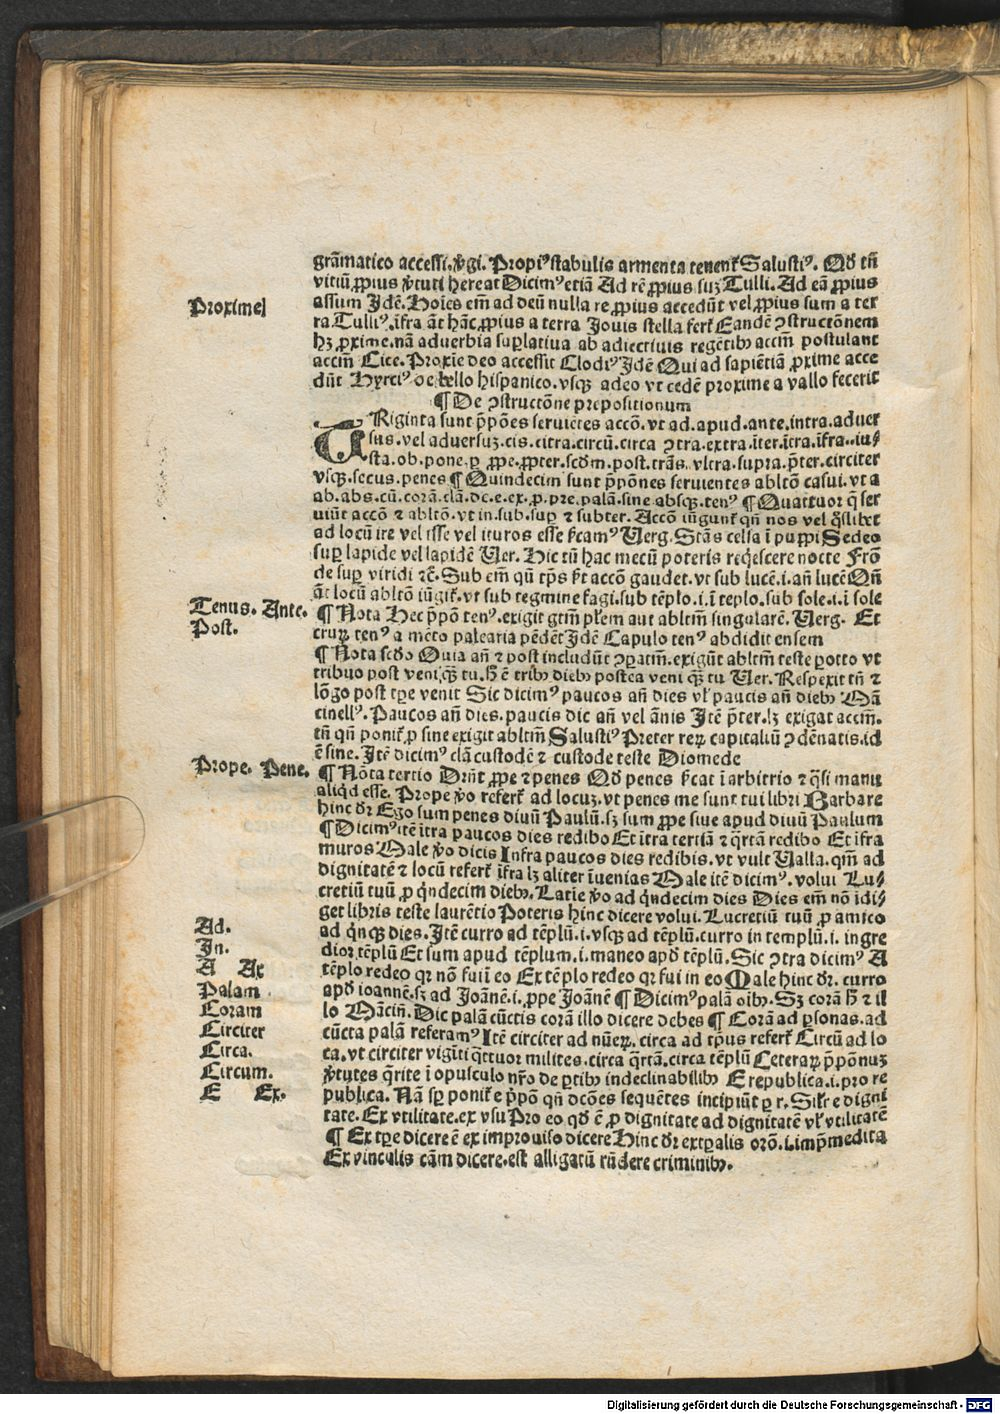 grãmatico accessi. v̓gi. Propiꝰ stabulis armenta tenent᷑ Salustiꝰ. Qđ tñ
vitiũ ꝓpius v̓tuti hereat Dicimꝰ etiã Ad rẽ ꝓpius suꝫ Tulli. Ad eã ꝓpius
assum Idẽ. Hoĩes em̃ ad deũ nulla re ꝓpius accedũt vel ꝓpius sum a ter
ra Tulliꝰ. ĩfra ãt hãc ꝓpius a terra Jouis stella fert᷑ Eandẽ ꝯstructõnem
hꝫ ꝓxime. nã aduerbia suꝑlatiua ab adiectiuis regẽtibꝫ accm̃ postulant
accm̃ Cice. Proxie deo accessit Clodiꝰ Idẽ Qui ad sapiẽtiã ꝓxime acce
dũt Hyrciꝰ de bello hispanico. vsqꝫ adeo vt cedẽ proxime a vallo fecerit
¶ De ꝯstructõne prepositionum
TRiginta sunt p̃pões seruiẽtes accõ. vt ad. apud. ante. intra. aduer
sus. vel aduersuꝫ. cis. citra. circũ. circa ꝯtra. extra. ĩter. ĩtra. ĩfra. iu⸗
sta. ob. pone. ꝑ ꝓpe. ꝓpter. scđm. post. trãs. vltra. supra. p̃ter. circiter
vsqꝫ. secus. penes ¶ Quindecim sunt p̃põnes seruientes abltõ casui. vt a
ab. abs. cũ. corã. clã. de. e. ex. ꝓ. pre. palã. sine absqꝫ. tenꝰ ¶ Quattuor q̃ ser
uiũt accõ ⁊ abltõ. vt in. sub. suꝑ ⁊ subter. Accõ iũgunt᷑ qñ nos vel q̃slibet
ad locũ ire vel isse vel ituros esse s̃camꝰ Uerg. Stãs celsa ĩ puppi Sedeo
suꝑ lapide vel lapidẽ Uer. Hic tũ hac mecũ poteris reqͥescere nocte Frõ
de suꝑ viridi ⁊c̃. Sub em̃ qũ tp̃s s̃t accõ gaudet. vt sub lucẽ. i. añ lucẽ Qñ
ãt locũ abltõ iũgit᷑. vt sub tegmine fagi. sub tẽplo. i. ĩ teplo. sub sole. i. ĩ sole
¶ Nota Hec p̃põ tenꝰ. exigit gtm̃ pl̃em aut abltm̃ singularẽ. Uerg. Et
cruꝝ tenꝰ a mẽto palearia pẽdẽt Idẽ Capulo tenꝰ abdidit ensem
¶ Nota scđo Quia añ ⁊ post includũt ꝯꝑatm̃. exigũt abltm̃ teste ꝑotto vt
tribuo post veni qꝫ tu. h̃ ẽ tribꝫ diebꝫ postea veni qꝫ tu Uer. Respexit tñ ⁊
lõgo post tꝑe venit Sic dicimꝰ paucos añ dies vl̃ paucis añ diebꝫ Mã
cinellꝰ. Paucos añ dies. paucis dic añ vel ãnis Itẽ p̃ter. lꝫ exigat accm̃.
tñ qñ ponit᷑ ꝓ sine exigit abltm̃ Salustiꝰ Preter reꝝ capitaliũ ꝯdẽnatis. id
ẽ sine. Itẽ dicimꝰ clã custodẽ ⁊ custode teste Diomede
¶ Nõta tertio Drñt ꝓpe ⁊ penes Qđ penes s̃cat ĩ arbitrio ⁊ q̃si manu
aliqͥd esse. Prope v̓o refert᷑ ad locuꝫ. vt penes me sunt tui libri Barbare
hinc dr̃ Ego sum penes diuũ Paulũ. sꝫ sum ꝓpe siue apud diuũ Paulum
¶ Dicimꝰ itẽ ĩtra paucos dies redibo Et ĩtra tertiã ⁊ q̃rtã redibo Et ĩfra
muros Male v̓o dicis Infra paucos dies redibis. vt vult Ualla. qm̃ ad
dignitatẽ ⁊ locũ refert᷑ ĩfra lꝫ aliter ĩuenias Male itẽ dicimꝰ. volui Lu⸗
cretiũ tuũ ꝓ qͥndecim diebꝫ. Latie v̓o ad qͥndecim dies Dies em̃ nõ ĩdi⸗
get libris teste laurẽtio Poteris hinc dicere volui. Lucretiũ tuũ ꝓ amico
ad qͥnqꝫ dies. Itẽ curro ad tẽplũ. i. vsqꝫ ad tẽplũ. curro in templũ. i. ingre
dior tẽplũ Et sum apud tẽplum. i. maneo apđ tẽplũ. Sic ꝯtra dicimꝰ A
tẽplo redeo qr nõ fui ĩ eo Ex tẽplo redeo qr fui in eo Male hinc dr̃. curro
apđ ioannẽ. sꝫ ad Joãnẽ. i. ꝓpe Joãnẽ ¶ Dicimꝰ palã oĩbꝫ. Sꝫ corã h̃ ⁊ il
lo Mãcin̄. Dic palã cũctis corã illo dicere debes ¶ Corã ad ꝑsonas. ad
cũcta palã referamꝰ Itẽ circiter ad nũeꝝ. circa ad tp̃us refert᷑ Circũ ad lo
ca. vt circiter vigĩti qͣttuor milites. circa qͣrtã. circa tẽplũ Ceteraꝝ p̃põnuꝫ
v̓tutes qͣrite ĩ opusculo nr̃o de ꝑtibꝫ indeclinabilibꝫ E republica. i. pro re
publica. Nã sꝑ ponit᷑ e p̃põ qñ dcões sequẽtes incipiũt ꝑ r. Sil̃r e digni
tate. Ex vtilitate. ex vsu Pro eo qđ ẽ ꝓ dignitate ad dignitatẽ vl̃ vtilitatẽ
¶ Ex tꝑe dicere ẽ ex improuiso dicere Hinc dr̃ extꝑalis orõ. i. imp̃medita
Ex vinculis cãm dicere. est alligatũ rñdere criminibꝫ.
Proximel
Tenus. Ante.
Post.
Prope. Pene.
Ad.
In.
A Ax
Palam
Coram
Circiter
Circa.
Circum.
E Ex.
Digitalisierung gefördert durch die Deutsche Forschungsgemeinschaft - DFG